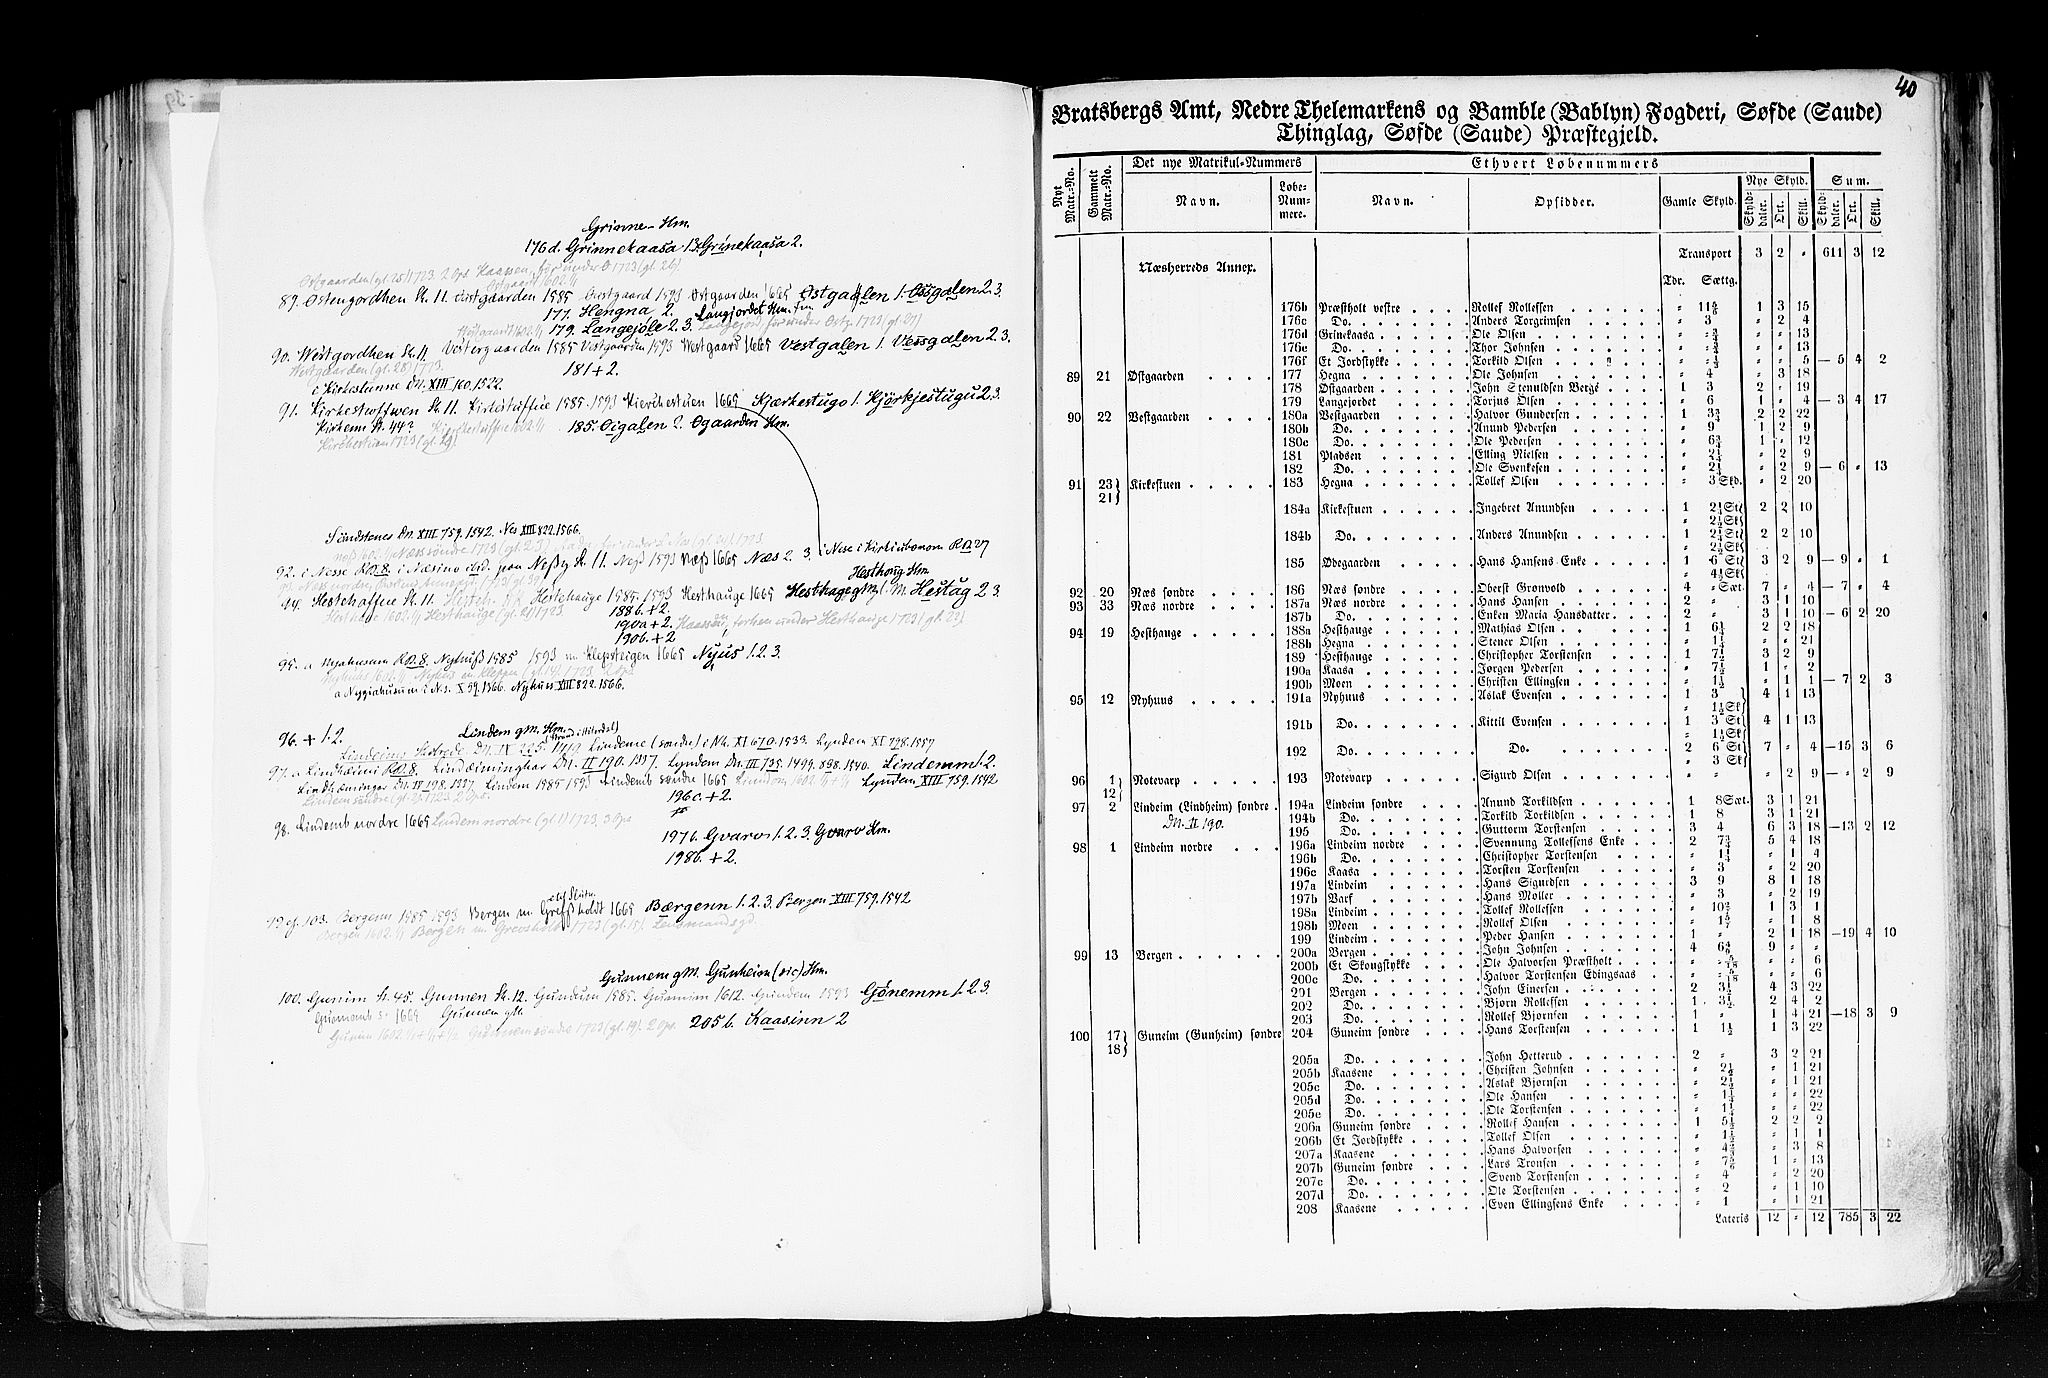 Grinne - Hm.
176d. Grinnekaasa 1. Grinekaasa 2.
89. Østengordhen St. 11. Østgaarden 1585 Østgaard 1593 Østgaarden 1665 Østgalen 1. Øssgalen 2. 3.
177. Hengna 2. Langjordet Hm.
179. Langejole 2. 3.
90. Westgordhen St. 11. Vestergaarden 1585 Vestgaarden 1593 Westgaard 1665 Vestgalen 1. Vessgalen 2 3.
Westgaarden (gl. 28) 1723.
181 + 2.
i Kirkestunne DN. XIII 160. 1522.
91. Kirkestoffwen St. 11. Kirkestuffue 1585. 1593 Kierchestuen 1665 Kjærkestugo 1. Kjörkjestugu 2 3.
Kirkem St. 44? 185. Oigalen 2. Øgaarden Hm.
Sundstenes DN. XIII 759. 1542. Nes XIII 822. 1566.
92. i Nesse RB. 8. i Næsino ibid. paa Neßy St. 11. Neß 1593 Næß 1665 Næs 2. 3. i Nese i Kirkiubonom RB. 27
Hesthoug Hm.
94. Hestehaffue St. 11. Hestehauge 1585. 1593 Hesthauge 1665 Hesthage gM. 1. M. Hestag 2 3.
188b. + 2.
190a + 2. Kaassen, forhen under Hesthauge 1723 (gl. 29)
190b. + 2
95. a Nyahusum RB. 8. Nyhuß 1585 1593 m. Klepsteigen 1665 Nyus 1. 2. 3.
a Nyggiahusum i N.s. X 59. 1366. Nyhuss XIII 822. 1566.
96. + 1. 2. Lindem gM. Hm.
97. a Lindhæimi RB. 8. Lindæiminghar DN. II 190. 1337. Lyndem DN. III 735. 1499, 898. 1540. Lindemm 1. 2.
Lindhæmingar DN. IV 198. 1337. Lindem 1585 1593 Lindemb søndre 1665 Lyndem XIII 759. 1542
196c. + 2.
98. Lindemb nordre 1665 Lindem nordre (gl. 1) 1723. 3 Ops
197b. Gvaro 1. 2. 3. Gvaro Hm.
198b. + 2.
99 cf. 103. Bergenn 1585 1593 Bergen m. Grefsholdt 1665 Bærgenn 1. 2. 3. Bergen XIII 759. 1542
Bergen 1602. 1/1 Bergen m. Grevsholt 1723 (gl. 15). Lensmandsgd.
Gunnem gM. Gunheim (sic) Hm.
100. Gunim St. 45. Gunnen St. 12. Gundum 1585. Gunnim 1612. Gundem 1593 Gönemm 1. 2. 3.
Gunnemb s. 1665 Gunnem
205b. Kaasinn 2
40
Bratsbergs Amt, Nedre Thelemarkens og Bamble (Bablyn) Fogderi, Søfde (Saude)
Thinglag, Søfde (Saude) Præstegjeld.
Nyt Matr.-No. Gammelt Matr.-No. Det nye Matrikul-Nummers Ethvert Løbenummers
Navn. Løbe-Nummere. Navn. Opsidder. Gamle Skyld. Nye Skyld. Sum.
Skylddaler. Ort. Skill. Skylddaler. Ort. Skill.
Transport 3 2 " 611 3 12
Næsherreds Annex. Tdr. Sættg.
176b Præstholt vestre Rollef Rollefsen " 11 4/6 1 3 15
176c Do. Anders Torgrimsen " 3 " 2 4
176d Grinekaasa Ole Olsen " 3/4 " " 13
176e Do. Thor Johnsen " 3/4 " " 13
176f Et Jordstykke Torkild Olsen " 1/3 " " 5 — 5 4 2
89 21 Østgaarden 177 Hegna Ole Johnsen " 4 " 3 18
178 Østgaarden John Stenuldsen Bergs 1 3 2 " 19
179 Langejordet Torjus Olsen " 6 1 " 4 — 3 4 17
90 22 Vestgaarden 180a Vestgaarden Halvor Gundersen 1 3 3/4 2 2 22
180b Do. Anund Pedersen " 9 1 2 9
180c Do. Ole Pedersen " 6 3/4 1 " 12
181 Pladsen Elling Nielsen " 2 1/4 " 2 9
182 Do. Ole Svenkesen " 2 1/4 " 2 9 — 6 " 13
91 23 } 21 } Kirkestuen 183 Hegna Tollef Olsen " 3 Skd. " 2 20
184a Kirkestuen Ingebret Anundsen 1 2 1/4 St } 2 2 10
" 2 1/2 Sk }
184b Do. Anders Anundsen 1 2 1/4 St } 2 2 10
" 2 1/2 Sk }
185 Ødegaarden Hans Hansens Enke 1 6 St } 3 2 9 — 9 " 1
" 4 1/2 Sk }
92 20 Næs søndre 186 Næs søndre Oberst Grønvold 4 " Sæt. 7 " 4 — 7 " 4
93 33 Næs nordre 187a Næs nordre Hans Hansen 2 " 3 1 10
187b Do. Enken Maria Hansdatter 2 " 3 1 10 — 6 2 20
94 19 Hesthauge 188a Hesthauge Mathias Olsen 1 6 1/4 2 2 18
188b Hegna Stener Olsen " 1 1/4 " " 21
189 Hesthauge Christopher Torstensen 1 7 1/2 3 2 9
190a Kaasa Jørgen Pedersen " 7 1/2 1 " 2
190b Moen Christen Ellingsen " 1 1/2 " 1 1 — 7 2 3
95 12 Nyhuus 191a Nyhuus Aslak Evensen 1 3 } 4 1 13
" 1 1/2 Sk }
191b Do. Kittil Evensen 1 3 St } 4 1 13
" 1 1/2 Sk }
192 Do. Do. 2 6 St } 7 " 4 —15 3 6
" 3 Sk }
96 1 } 12 } Notevarp 193 Notevarp Sigurd Olsen " " " 2 9 — " 2 9
97 2 Lindeim (Lindheim) søndre 194a Lindeim søndre Anund Torkildsen 1 8 Sæt. 3 1 21
DN. II 190. 194b Do. Torkild Torkildsen 1 8 3 1 21
195 Do. Guttorm Torstensen 3 4 6 3 18 —13 2 12
98 1 Lindeim nordre 196a Lindeim nordre Svennung Tollefsens Enke 2 7 3/4 5 4 18
196b Do. Christopher Torstensen " 1 1/4 " 1 4
196c Kaasa Torsten Torstensen " 3 " 2 20
197a Lindeim Hans Sigurdsen 3 9 8 1 18
197b Varf Hans Møller " 3 " 2 19
198a Lindeim Tollef Rollefsen " 10 2/7 1 3 1
198b Moen Rollef Olsen " 1 5/7 " 1 8
199 Lindeim Peder Hansen 1 " 2 1 18 —19 4 10
99 13 Bergen 200a Bergen John Johnsen 4 6 4/9 9 " "
200b Et Skougstykke Ole Halvorsen Præstholt " 5/18 " " 6
200c Do. Halvor Torstensen Edingsaas " 5/18 " " 6
201 Bergen John Einersen 2 3 1/2 4 3 22
202 Do. Bjørn Rollefsen 1 3 1/2 2 4 2
203 Do. Rollef Bjørnsen 1 " 1 4 21 —18 3 9
100 17 } 18 } Guneim (Gunheim) søndre 204 Guneim søndre Hans Torstensen 1 1 1/2 1 3 22
205a Do. John Hetterud 2 " 3 2 21
205b Kaasene Christen Johnsen " 2 1/2 " 1 21
205c Do. Aslak Bjørnsen " 2 1/2 " 1 21
205d Do. Ole Hansen " 1 1/4 " " 22
205e Do. Ole Torstensen " 1 1/4 " " 22
206a Guneim søndre Rollef Hansen 1 5 1/2 2 2 2
206b Et Jordstykke Tollef Olsen " 1 1/2 " 1 1
207a Kaasene Hans Halvorsen " 4 2/5 " 3 8
207b Guneim søndre Lars Tronsen " 7 3/5 1 " 13
207c Do. Svend Torstensen " 4 " 2 20
207d Do. Ole Torstensen " 2 " 1 10
208 Kaasene Even Ellingsens Enke " 1 " 1 21
Lateris 12 " 12 785 3 22